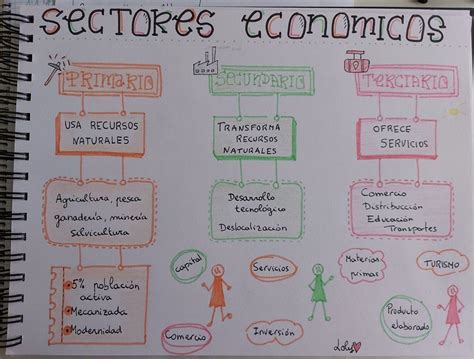 SECTORES ECONOMICOS
PRIMARIO
SECUNDARIO
TERCIARIO
USA RECURSOS
NATURALES
TRANSFORMA
RECURSOS
NATURALES
OFRECE
SERVICIOS
Agricultura, pesca
ganadería, minería
silvicultura
Desarrollo
tecnológico
Deslocalización
Comercio
Distribucción
Educación
Transportes
5% población
activa
Mecanizada
Modernidad
capital
Servicios
Materias
primas
TURISMO
Comercio
Inversión
Producto
elaborado
Loly